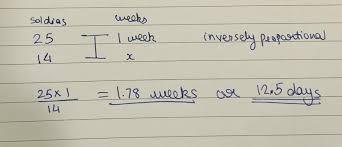 soldias weeks
25 1 week inversely proportional
14 x
25 x 1 = 1.78 weeks or 12.5 days
14